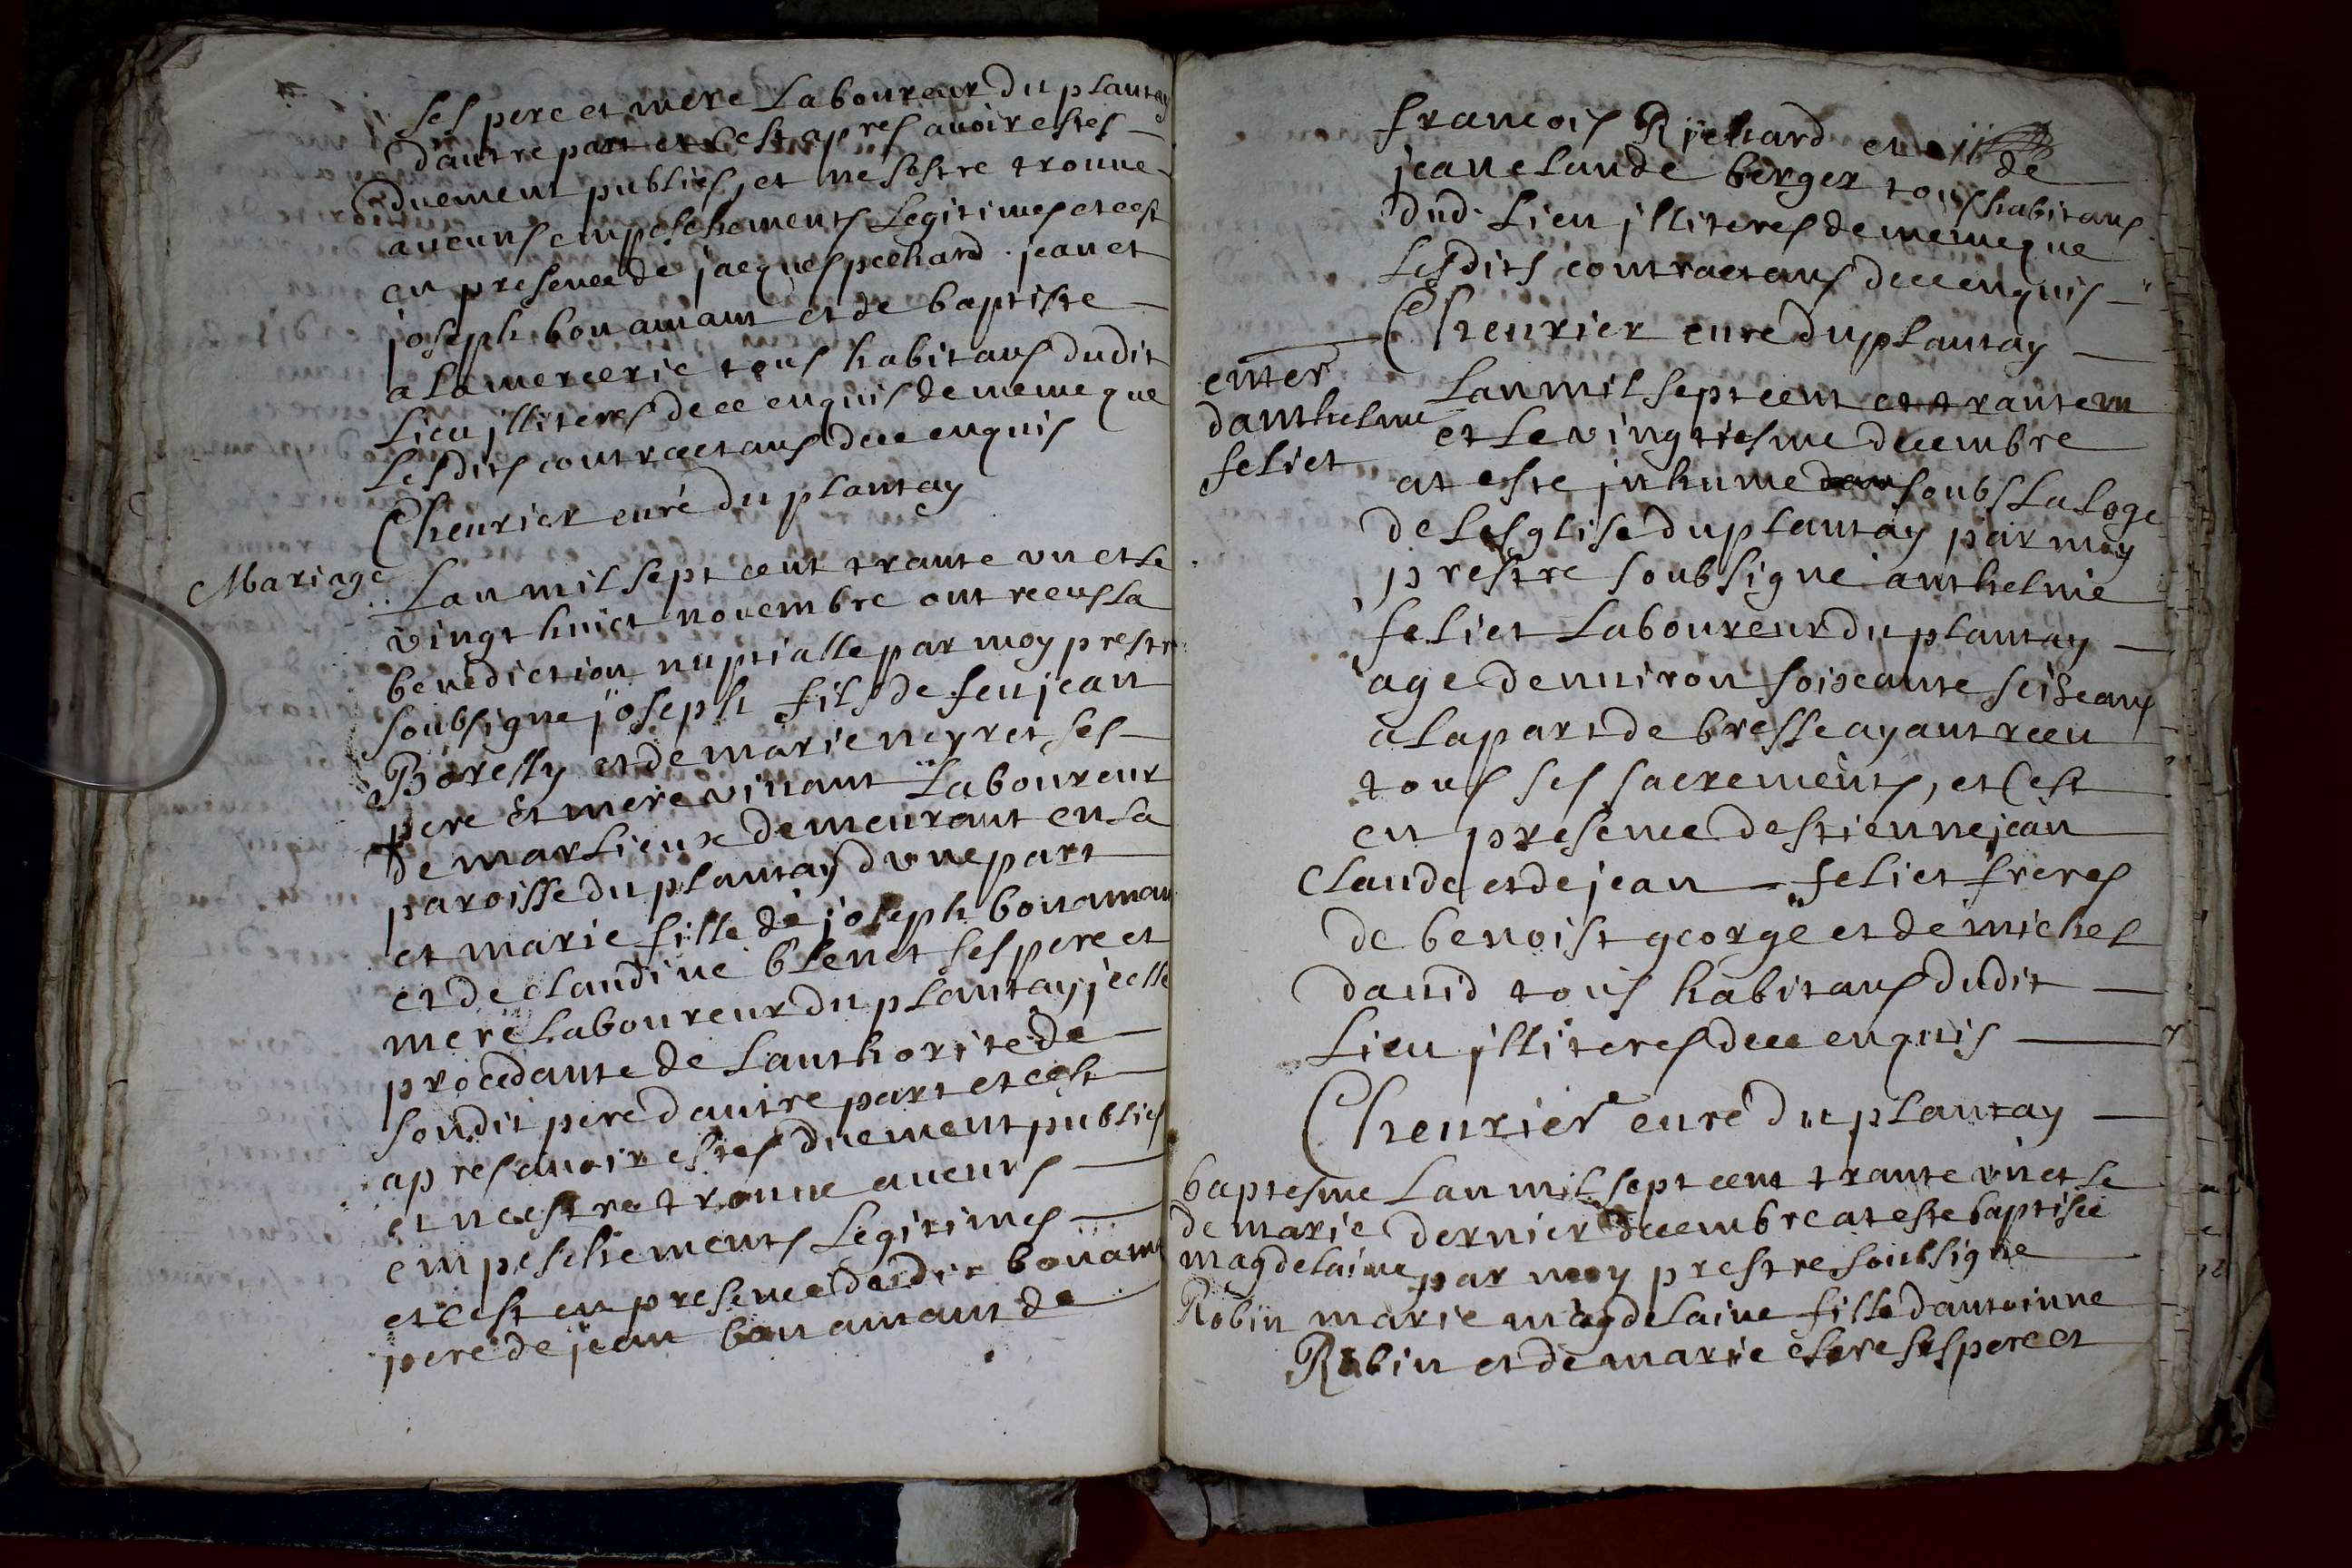 ses pere et mere Laboureur du plantay
dautre part et cest apres auoir estes
duement publies, et ne sestre trouue
aucuns empeschements Legitimes et cest
en presence de jacques pechard jean et
joseph bonamant et de baptiste
alamercerie tous habitans dudit
Lieu jlliteres de ce enquis de meme que
Lesdits contractans de ce enquis
Cheurier curé du plantay
Mariage
Lan mil sept cent trante vn et le
vingt huict nouembre ont receus la
benediction nuptialle par moy prestre
soubsigne joseph fils de feu jean
Borelly et de marie neyret ses
pere et mere viuant Laboureur
de marlieux demeurant en la
paroisse du plantay dvne part
et marie fille de joseph bonamant
et de claudine blenet ses pere et
mere Laboureur du plantay jcelle
procedante de Lauthorite de
sondit pere dautre part et cest
apres auoir estes duement publies
et ne estre trouue aucuns
empeschements Legitimes
et cest en presence dudit bonamt
pere de jean bonamant de
francois Rjchard et
jean claude berger tous habitans
de
dud. Lieu jlliteres de meme que
Lesdits contractans de ce enquis
Cheurier cure du plantay
enter
danthelme
feliet
Lan mil sept cent et trantem
et Le vingtiesme decembre
at este jnhume soubs La Loge
de Lesglise du plantay par moy
prestre soubsigne anthelme
feliet Laboureur du plantay
age denuiron soixante seise ans
a la part de bresse ayant receu
tous ses sacrements, et Cest
en presence destienne jean
Claude et de jean feliet freres
de benoist george et de michel
dauid tous habitans dudit
Lieu jlliteres de ce enquis
Cheurier curé du plantay
baptesme
de marie
magdelaine
Robin
Lan mil sept cent trante vn et le
dernier decembre at este baptisee
par moy prestre soubsigne
marie magdelaine fille dantoinne
Robin et de marie ses pere et